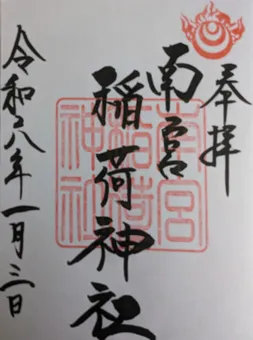 奉拝
南宮
稲荷神社
令和八年一月三日
南宮
稲荷
神社